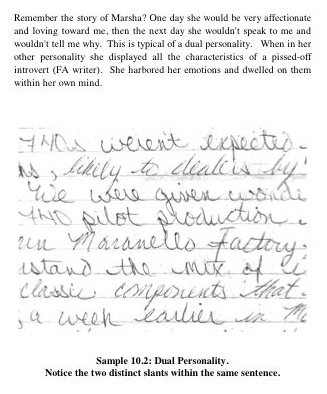 Remember the story of Marsha? One day she would be very affectionate
and loving toward me, then the next day she wouldn't speak to me and
wouldn't tell me why. This is typical of a dual personality. When in her
other personality she displayed all the characteristics of a pissed-off
introvert (FA writer). She harbored her emotions and dwelled on them
within her own mind.
weren't expected
likely to dealers by
were given
pilot production.
Maranello Factory.
the mix of
classic components that
a week earlier in
Sample 10.2: Dual Personality.
Notice the two distinct slants within the same sentence.